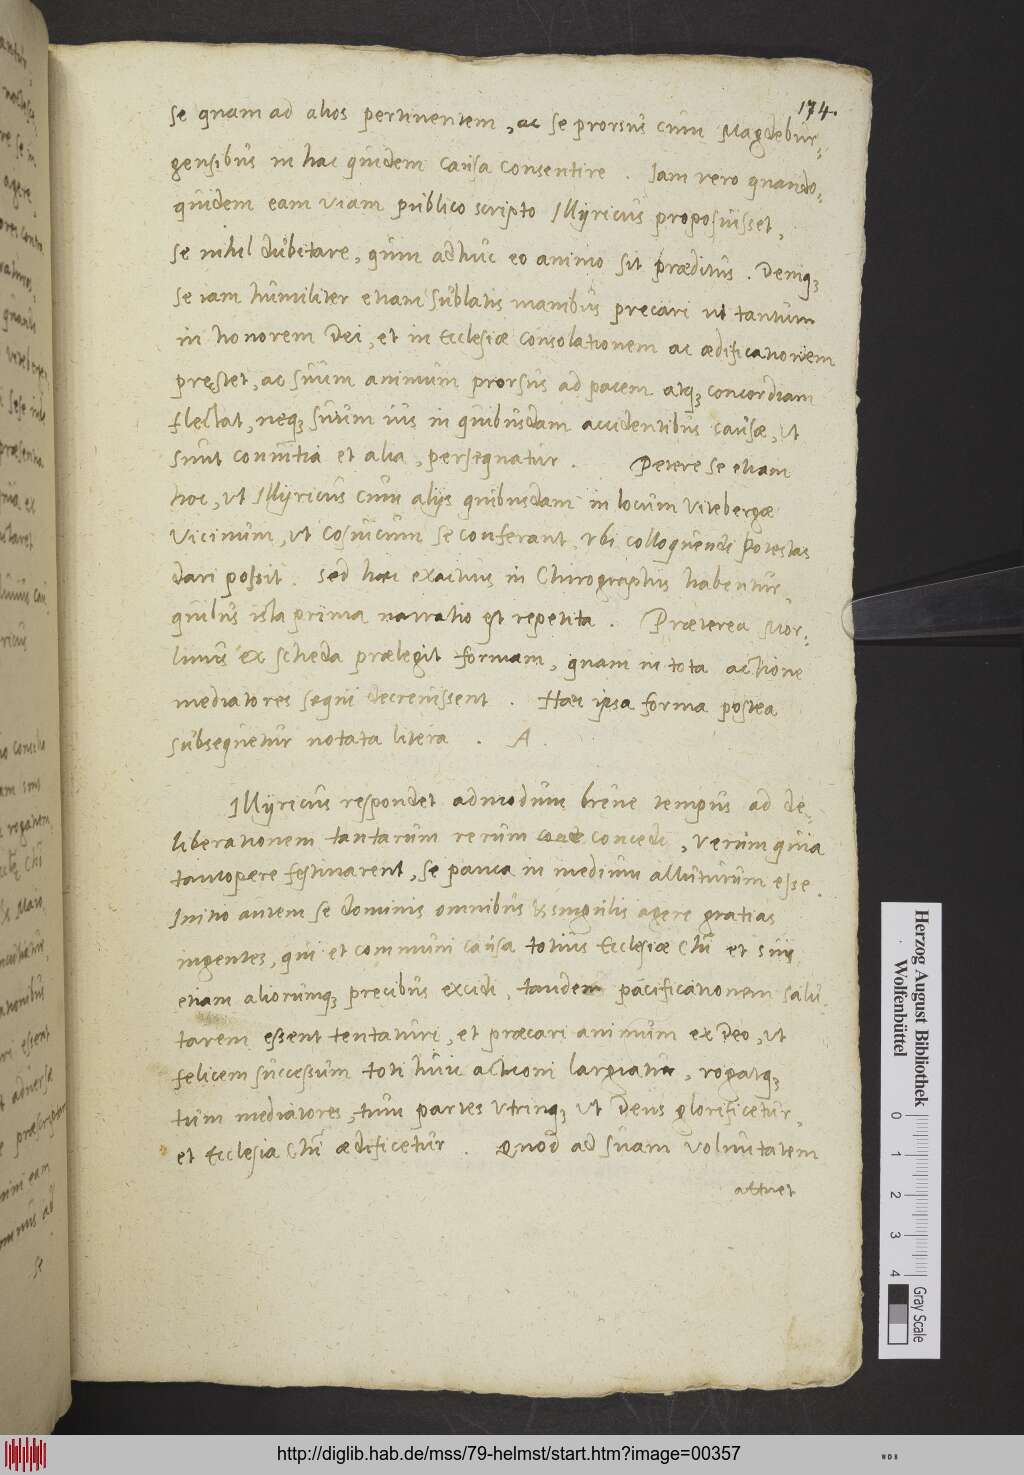 174.
se quam ad alios pertinentem, ac se prorsus cum Magdebur-
gensibus in hac quidem causa consentire. Iam vero quando-
quidem eam viam publico scripto Illyricus proposuisset,
se nihil dubitare, quin adhuc eo animo sit præditus. Deniq;
se iam humiliter etiam sublatis manibus precari ut tantum
in honorem Dei, et in Ecclesiæ consolationem ac ædificationem
præstet, ac suum animum prorsus ad pacem atq; concordiam
flectat, neq; suum ius in quibusdam accidentibus causæ, ut
sunt convitia et alia, persequatur. Petere se etiam
hoc, ut Illyricus cum alijs quibusdam in locum Vitebergæ
vicinum, ut Cosuicum se conferant, ubi colloquendi potestas
dari possit. Sed hæc exactius in Chirographis habentur,
quibus ista prima narratio est repetita. Præterea Mor-
linus ex scheda prælegit formam, quam in tota actione
mediatores sequi decrevissent. Hæc ipsa forma postea
subsequetur notata litera. A.
Illyricus respondet admodum breve tempus ad de-
liberationem tantarum rerum concedi, verum quia
tantopere festinarent, se pauca in medium allaturum esse.
Initio autem se dominis omnibus et singulis agere gratias
ingentes, qui et communi causa totius Ecclesiæ Chri et suis
etiam aliorumq; precibus exciti, tandem pacificationem salu-
tarem essent tentaturi, et præcari animum ex Deo, ut
felicem successum toti huic actioni largiatur, rogatq;
tum mediatores, tum partes utrinq; ut Deus glorificetur,
et Ecclesia Chri ædificetur. Quod ad suam voluntatem
attinet
Herzog August Bibliothek
Wolfenbüttel
0 1 2 3 4
Gray Scale
http://diglib.hab.de/mss/79-helmst/start.htm?image=00357